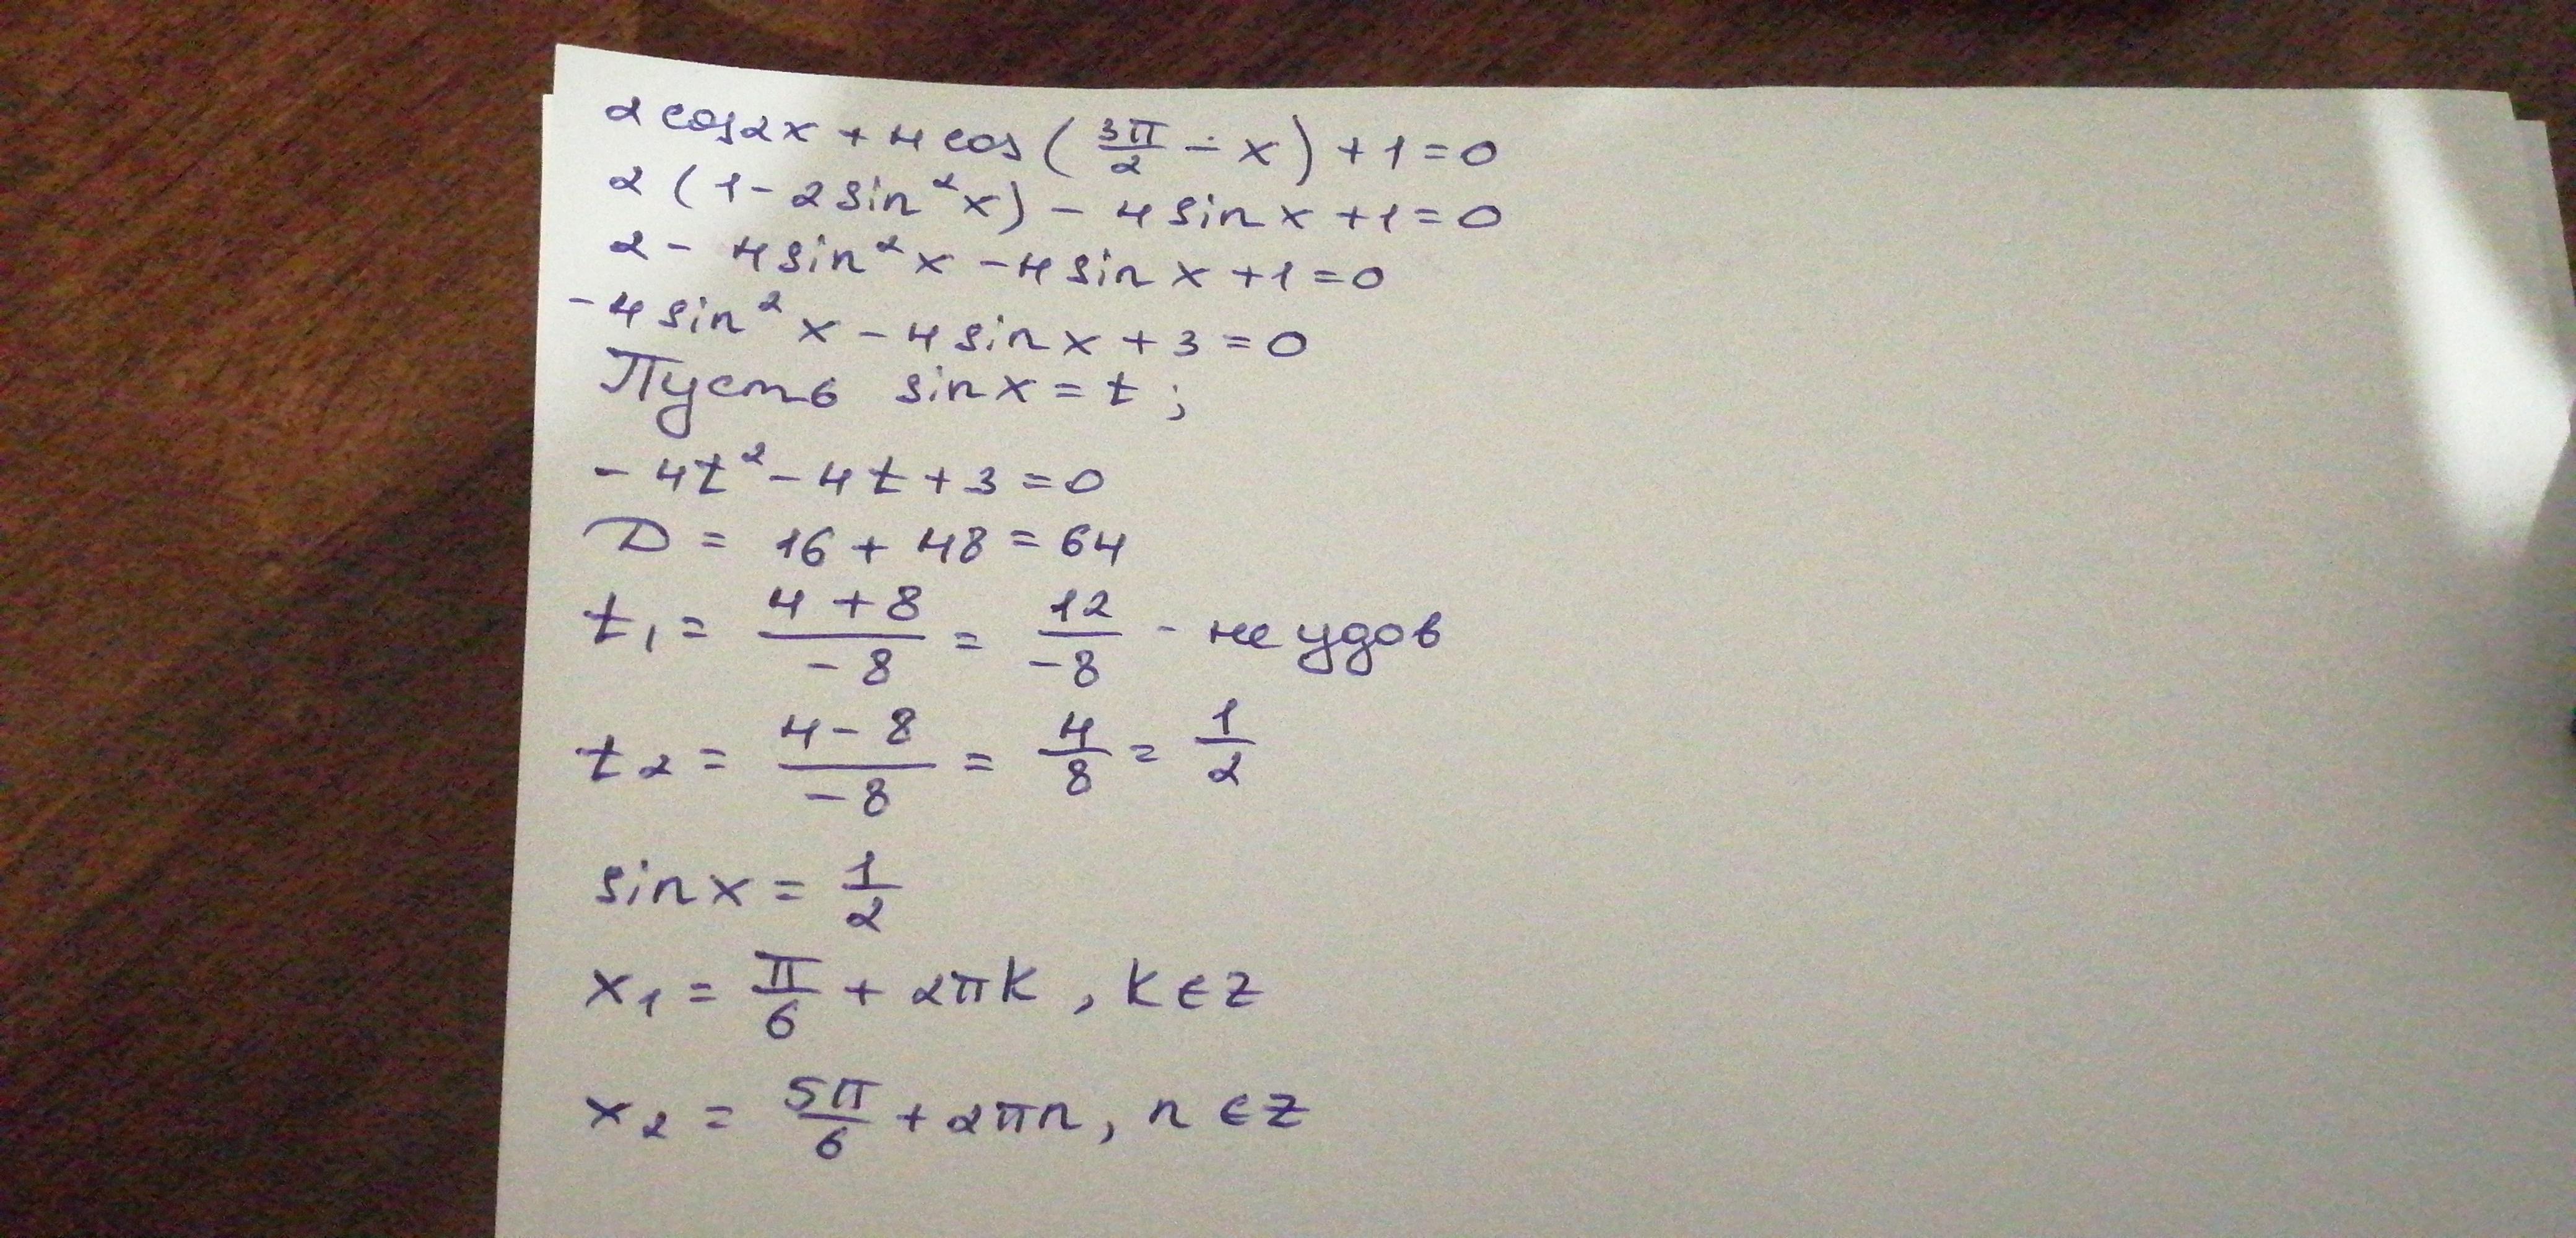 2cos2x + 4cos(3π/2 - x) + 1 = 0
2(1 - 2sin²x) - 4sinx + 1 = 0
2 - 4sin²x - 4sinx + 1 = 0
-4sin²x - 4sinx + 3 = 0
Пусть sinx = t;
-4t² - 4t + 3 = 0
D = 16 + 48 = 64
t₁ = (4+8)/(-8) = 12/(-8) - не удов
t₂ = (4-8)/(-8) = 4/8 = 1/2
sinx = 1/2
x₁ = π/6 + 2πk, k∈z
x₂ = 5π/6 + 2πn, n∈z